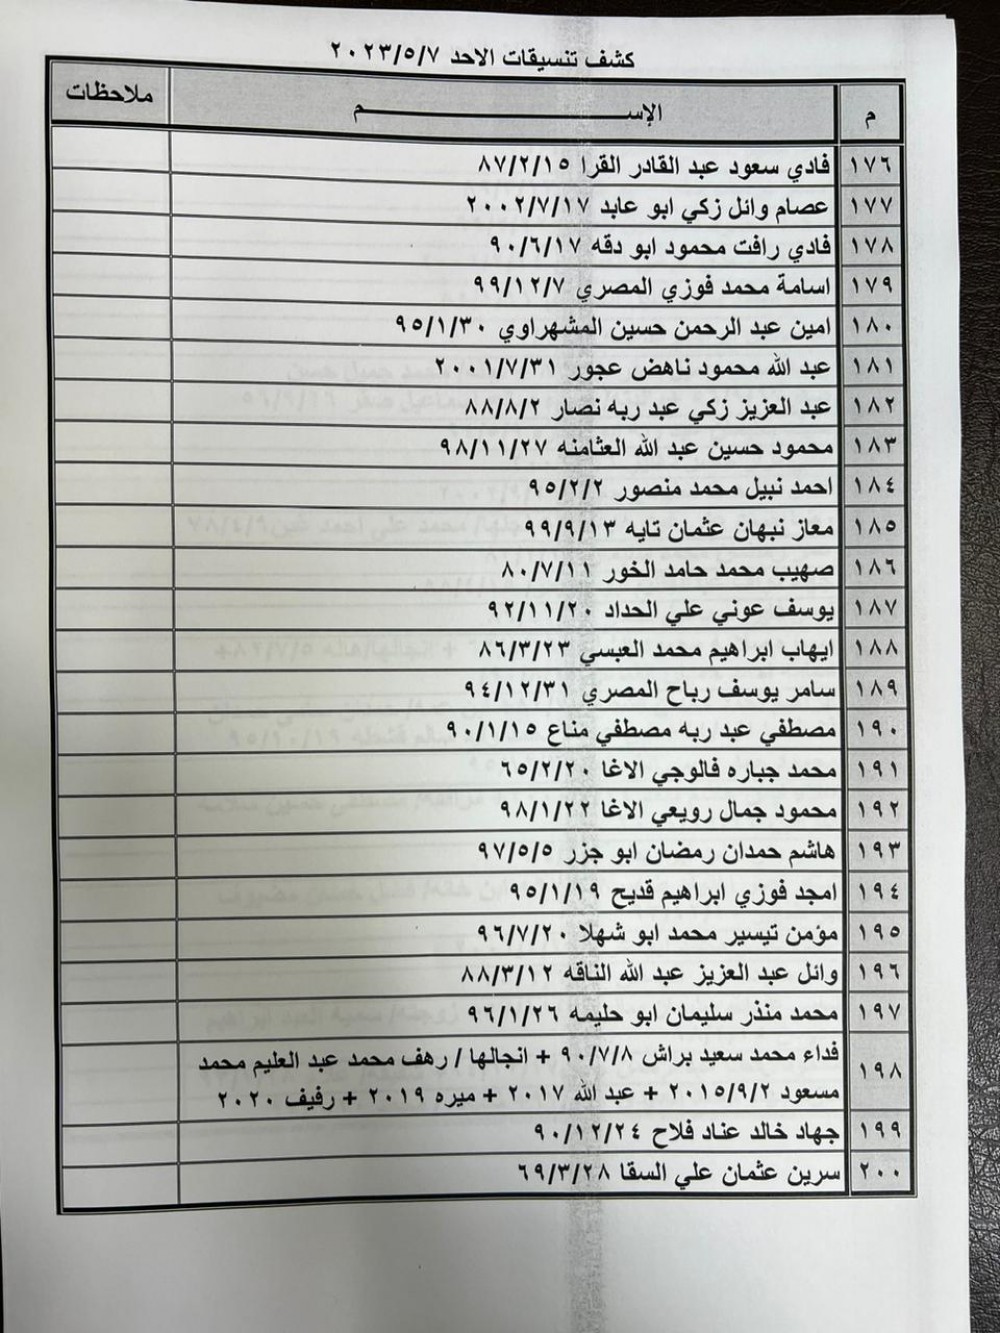 كشف تنسيقات الاحد ٢٠٢٣/٥/٧
م الإســـــــــم ملاحظات
١٧٦ فادي سعود عبد القادر القرا ٨٧/٢/١٥
١٧٧ عصام وائل زكي ابو عابد ٢٠٠٢/٧/١٧
١٧٨ فادي رافت محمود ابو دقه ٩٠/٦/١٧
١٧٩ اسامة محمد فوزي المصري ٩٩/١٢/٧
١٨٠ امين عبد الرحمن حسين المشهراوي ٩٥/١/٣٠
١٨١ عبد الله محمود ناهض عجور ٢٠٠١/٧/٣١
١٨٢ عبد العزيز زكي عبد ربه نصار ٨٨/٨/٢
١٨٣ محمود حسين عبد الله العثامنه ٩٨/١١/٢٧
١٨٤ احمد نبيل محمد منصور ٩٥/٢/٢
١٨٥ معاز نبهان عثمان تايه ٩٩/٩/١٣
١٨٦ صهيب محمد حامد الخور ٨٠/٧/١١
١٨٧ يوسف عوني علي الحداد ٩٢/١١/٢٠
١٨٨ ايهاب ابراهيم محمد العبسي ٨٦/٣/٢٣
١٨٩ سامر يوسف رباح المصري ٩٤/١٢/٣١
١٩٠ مصطفي عبد ربه مصطفي مناع ٩٠/١/١٥
١٩١ محمد جباره فالوجي الاغا ٦٥/٢/٢٠
١٩٢ محمود جمال رويعي الاغا ٩٨/١/٢٢
١٩٣ هاشم حمدان رمضان ابو جزر ٩٧/٥/٥
١٩٤ امجد فوزي ابراهيم قديح ٩٥/١/١٩
١٩٥ مؤمن تيسير محمد ابو شهلا ٩٦/٧/٢٠
١٩٦ وائل عبد العزيز عبد الله الناقه ٨٨/٣/١٢
١٩٧ محمد منذر سليمان ابو حليمه ٩٦/١/٢٦
١٩٨ فداء محمد سعيد براش ٩٠/٧/٨ + انجالها / رهف محمد عبد العليم محمد
مسعود ٢٠١٥/٩/٢ + عبد الله ٢٠١٧ + ميره ٢٠١٩ + رفيف ٢٠٢٠
١٩٩ جهاد خالد عناد فلاح ٩٠/١٢/٢٤
٢٠٠ سرين عثمان علي السقا ٦٩/٣/٢٨